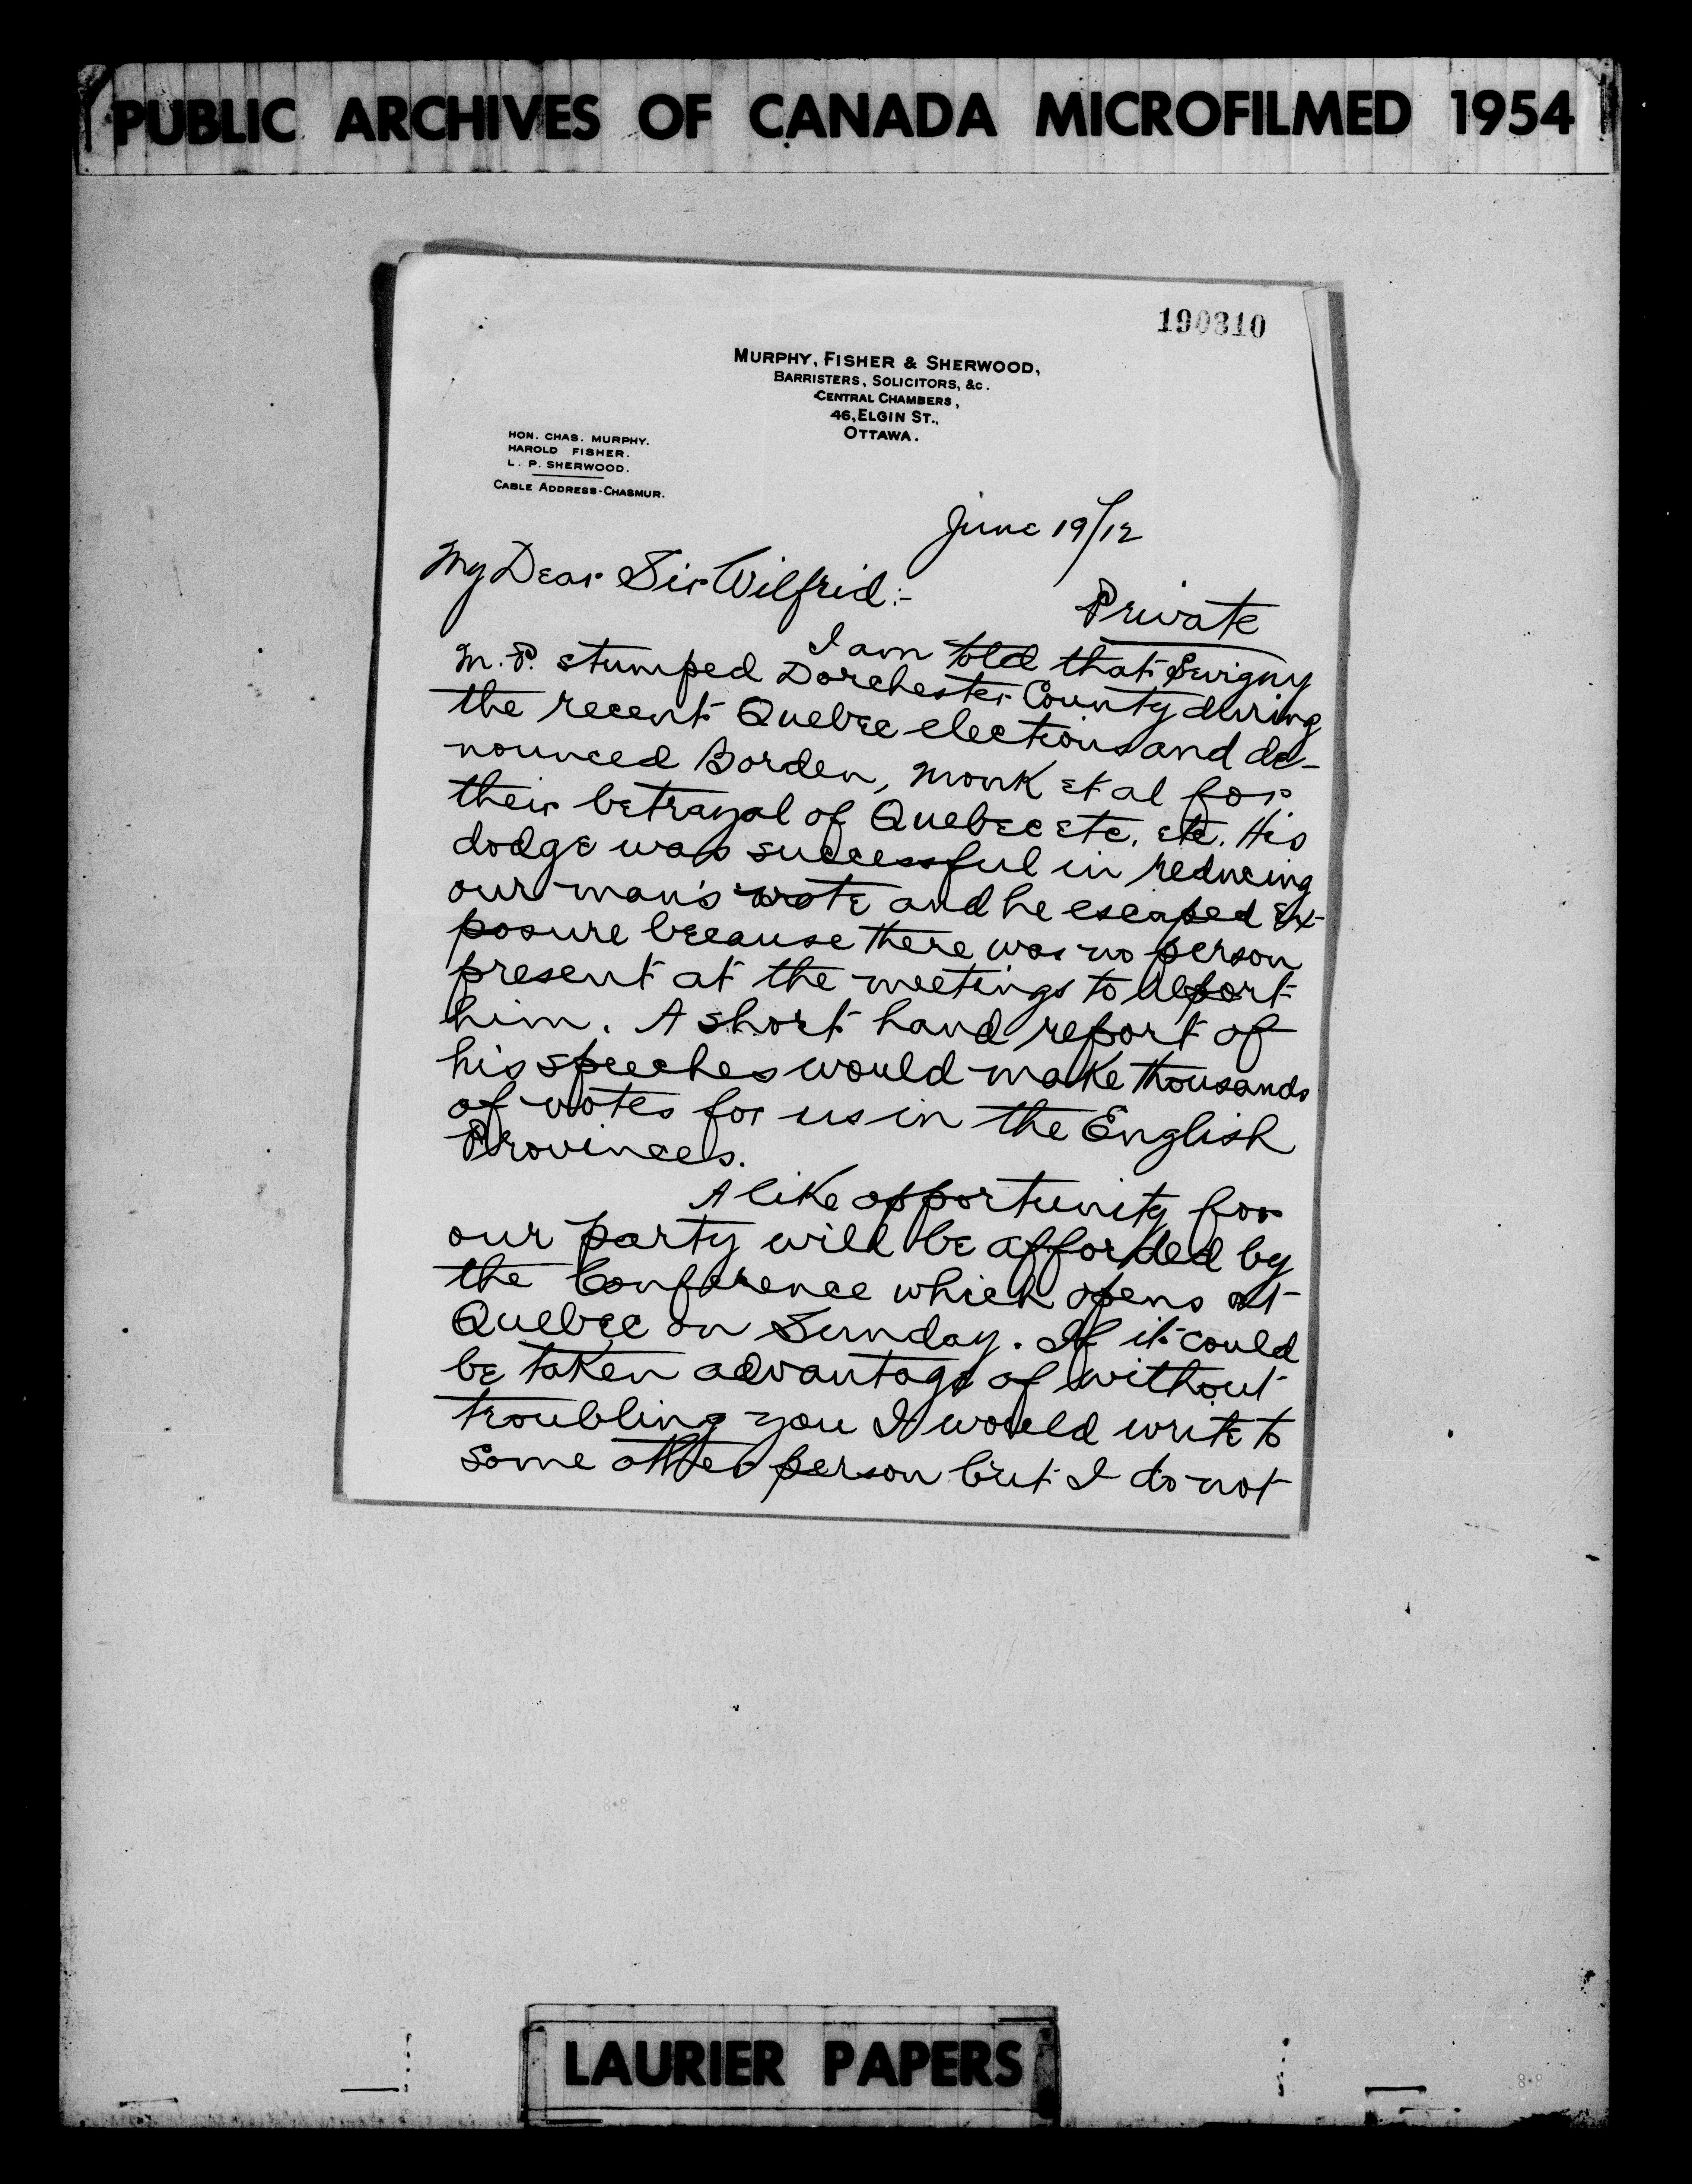 PUBLIC ARCHIVES OF CANADA MICROFILMED 1954
190310
MURPHY, FISHER & SHERWOOD,
BARRISTERS, SOLICITORS, &c.
CENTRAL CHAMBERS,
46, ELGIN ST.,
OTTAWA.
HON. CHAS. MURPHY.
HAROLD FISHER.
L. P. SHERWOOD.
CABLE ADDRESS-CHASMUR.
June 19/12
My Dear Sir Wilfrid:-
Private
I am told that Sevigny
M.P. stumped Dorchester County during
the recent Quebec elections and de-
nounced Borden, Monk et al for
their betrayal of Quebec etc. etc. His
dodge was successful in reducing
our man's vote and he escaped ex-
posure because there was no person
present at the meetings to report
him. A short hand report of
his speeches would make thousands
of votes for us in the English
Provinces.
A like opportunity for
our party will be afforded by
the Conference which opens at
Quebec on Sunday. If it could
be taken advantage of without
troubling you I would write to
some other person but I do not
LAURIER PAPERS